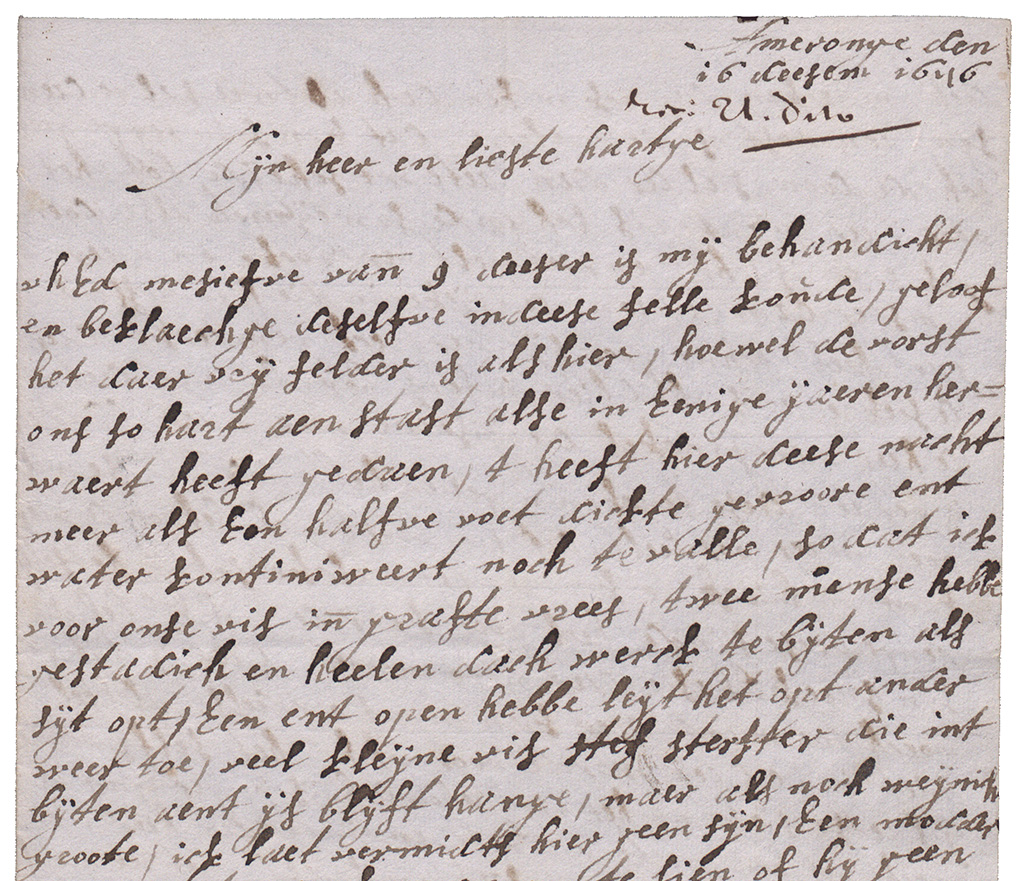 Ameronge den
16 deesem 1676
rec: U. dito
Mijn heer en liefste hartge
uhEd mesiefve van 9 deeser is mij behandicht,
en beklaechge deselfve in deese felle koude, geloof
het daer vrij felder is als hier, hoewel de vorst
ons so hart aen stast alse in Eenige jaeren her=
waert heeft gedaen, t heeft hier deese nacht
meer als Een halfve voet dickte gevroore ent
water kontiniweert noch te valle, so dat ick
voor onse vis in grafte vrees, twee mense hebbe
gestadich en heelen dach werck te bijten als
sijt opt, Een ent open hebbe leijt het opt ander
weer toe, veel kleijne vis sterfter die int
bijten aent ijs blijft hange, maer als noch weijnich
groote, ick laet vermidts hier geen sijn, Een modder
te lien of hij geen